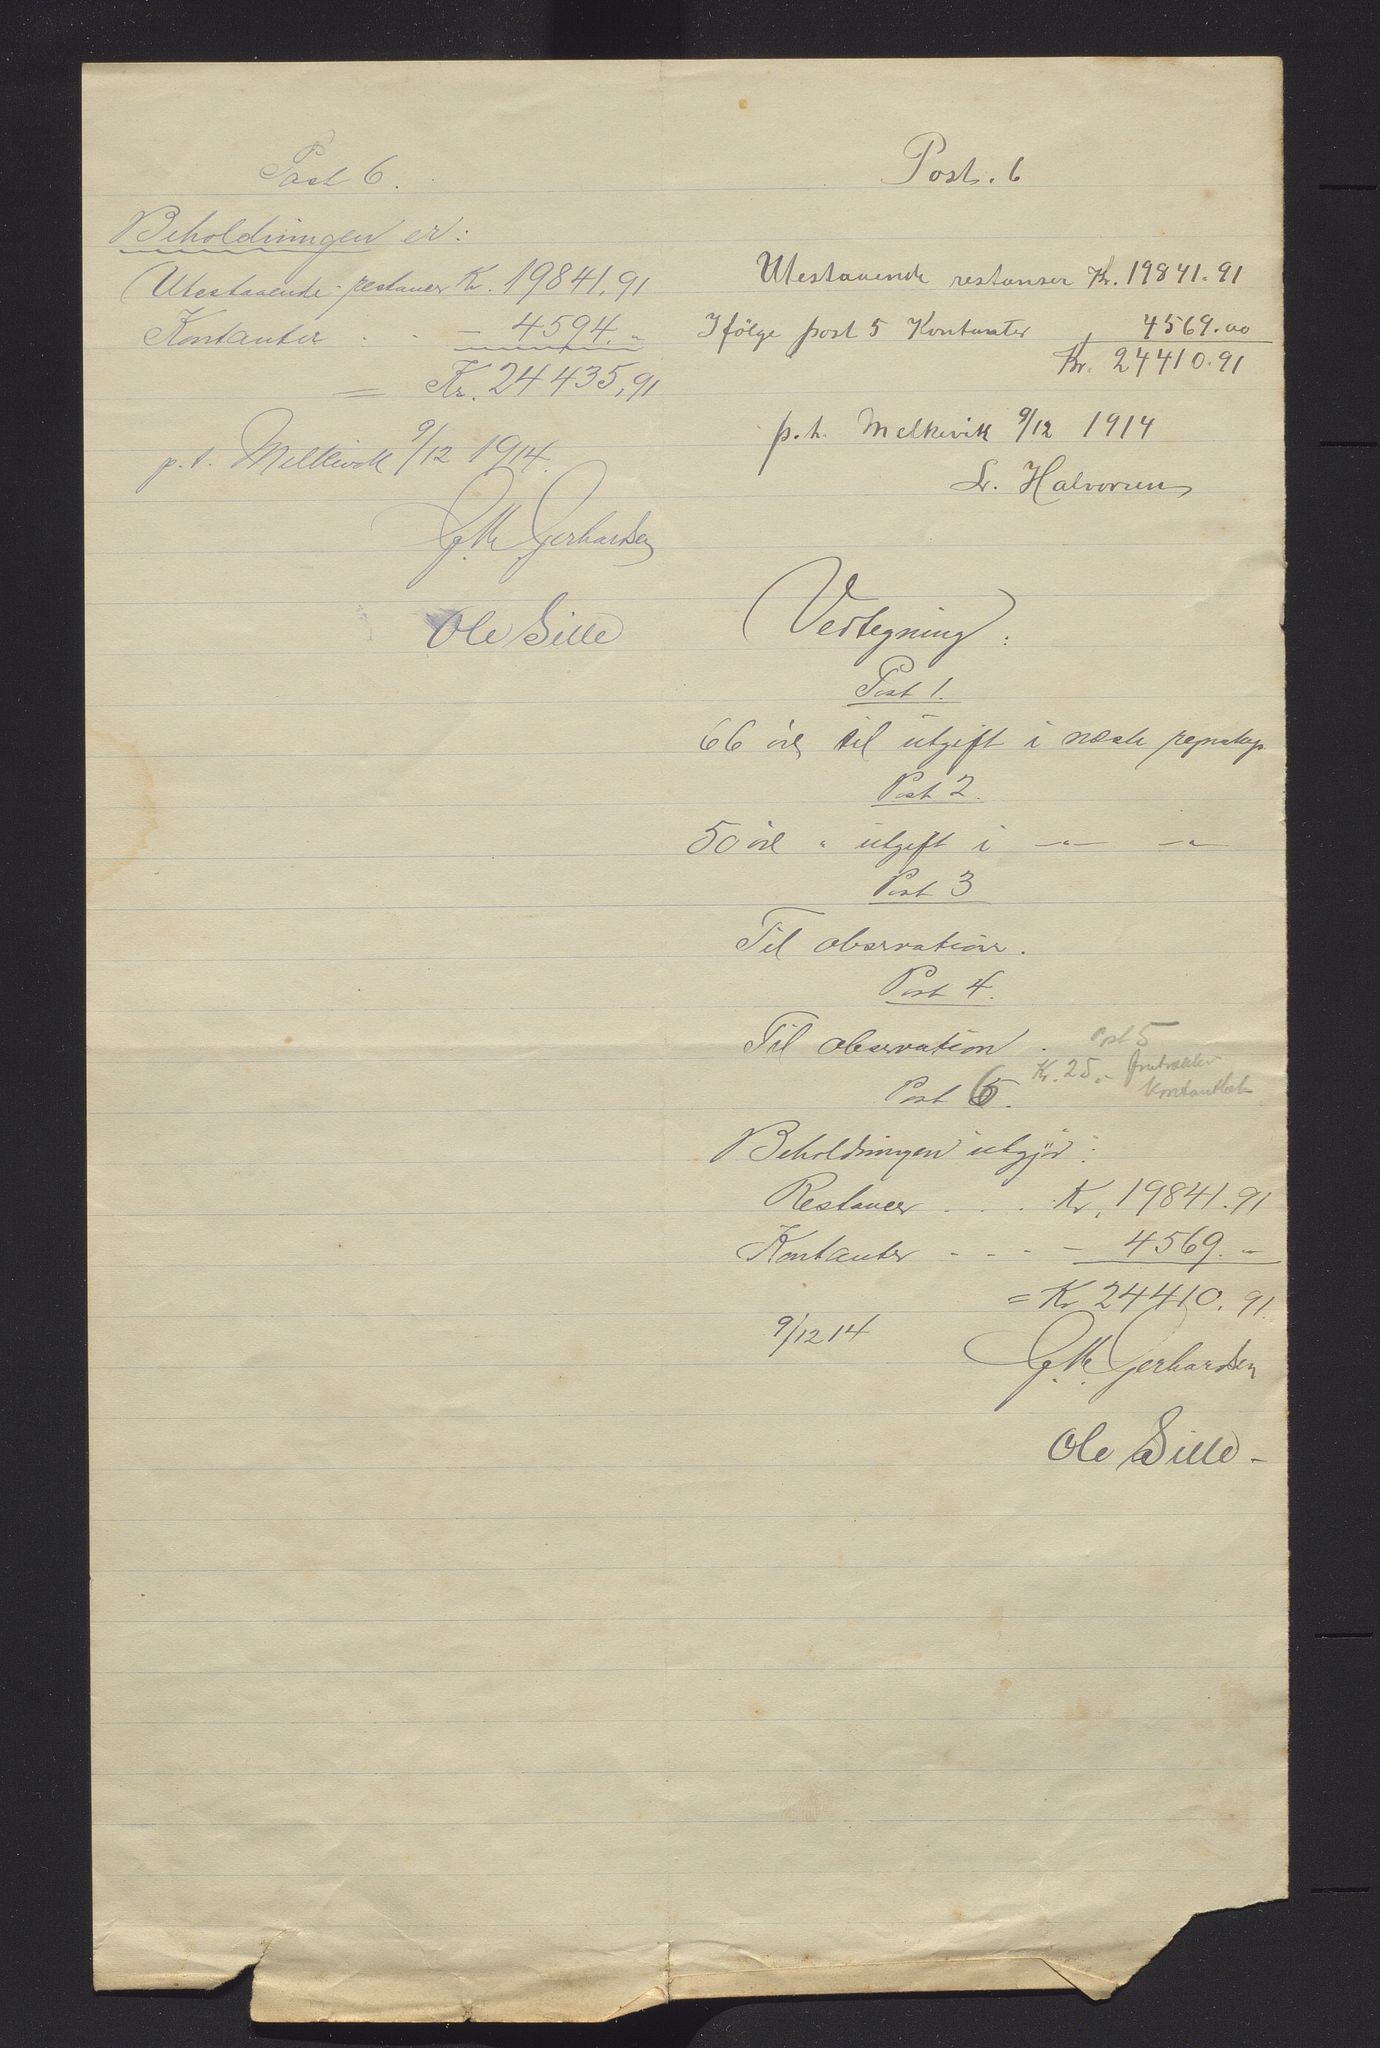 Post 6.
Beholdningen er:
Utestaaende restancer Kr. 19841,91
Kontanter . . — 4594.-
= Kr. 24435,91
p.t. Melkevik 9/12 1914.
G. M. Gerhardsen
Ole Sille
Post. 6
Utestaaende restanser Kr. 19841.91
Ifölge post 5 Kontanter 4569.00
Kr. 24410.91
p.t. Melkevik 9/12 1914
L. Halvorsen
Vedtegning:
Post 1.
66 öre til utgift i næste regnskap
Post 2.
50 öre " utgift i —"— —"—
Post 3
Til observation.
Post 4.
Til observation.
Post 5
Kr. 25.- fratrækkes
kontantbeh.
Post 6.
Beholdningen utgjör:
Restancer . . . Kr. 19841.91
Kontanter - - - - 4569.-
= Kr 24410.91.
9/12 14
G. M. Gerhardsen
Ole Sille -